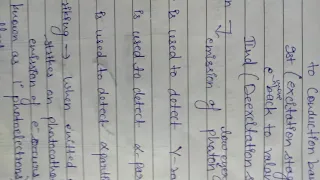 to Conduction ba
gst (excitation stag
e⁻ back to vale
Ind (Deexcitation s
lower
emission of photon (
is used to detect γ-ra
is used to detect α-par
is used to detect α parti
→ When emitted
strikes on photocatho
emission of e⁻ occurs
known as 1° photoelectrons